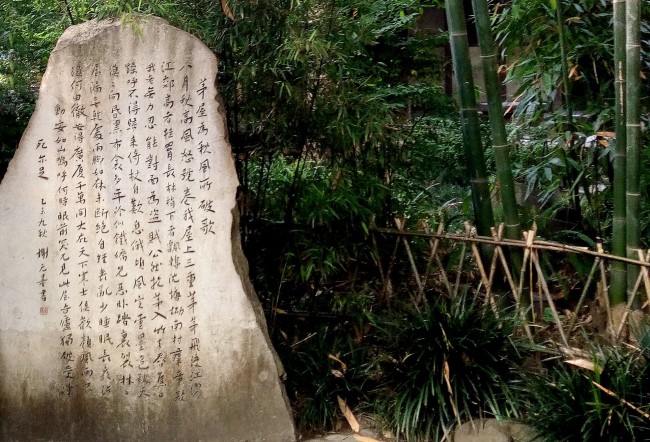 茅屋為秋風所破歌
八月秋高風怒號卷我屋上三重茅茅飛渡江灑
江郊高者挂罥長林梢下者飄轉沈塘坳南村群童欺
我老無力忍能對面為盜賊公然抱茅入竹去唇焦口
燥呼不得歸來倚杖自歎息俄頃風定雲墨色秋天
漠漠向昏黑布衾多年冷似鐵嬌兒惡卧踏裏裂牀牀
屋漏無乾處雨脚如麻未斷絕自經喪亂少睡眠長夜沾
溼何由徹安得廣廈千萬間大庇天下寒士俱歡顏風雨不
動安如山嗚呼何時眼前突兀見此屋吾廬獨破受凍
死亦足 乙未九秋 謝无量書